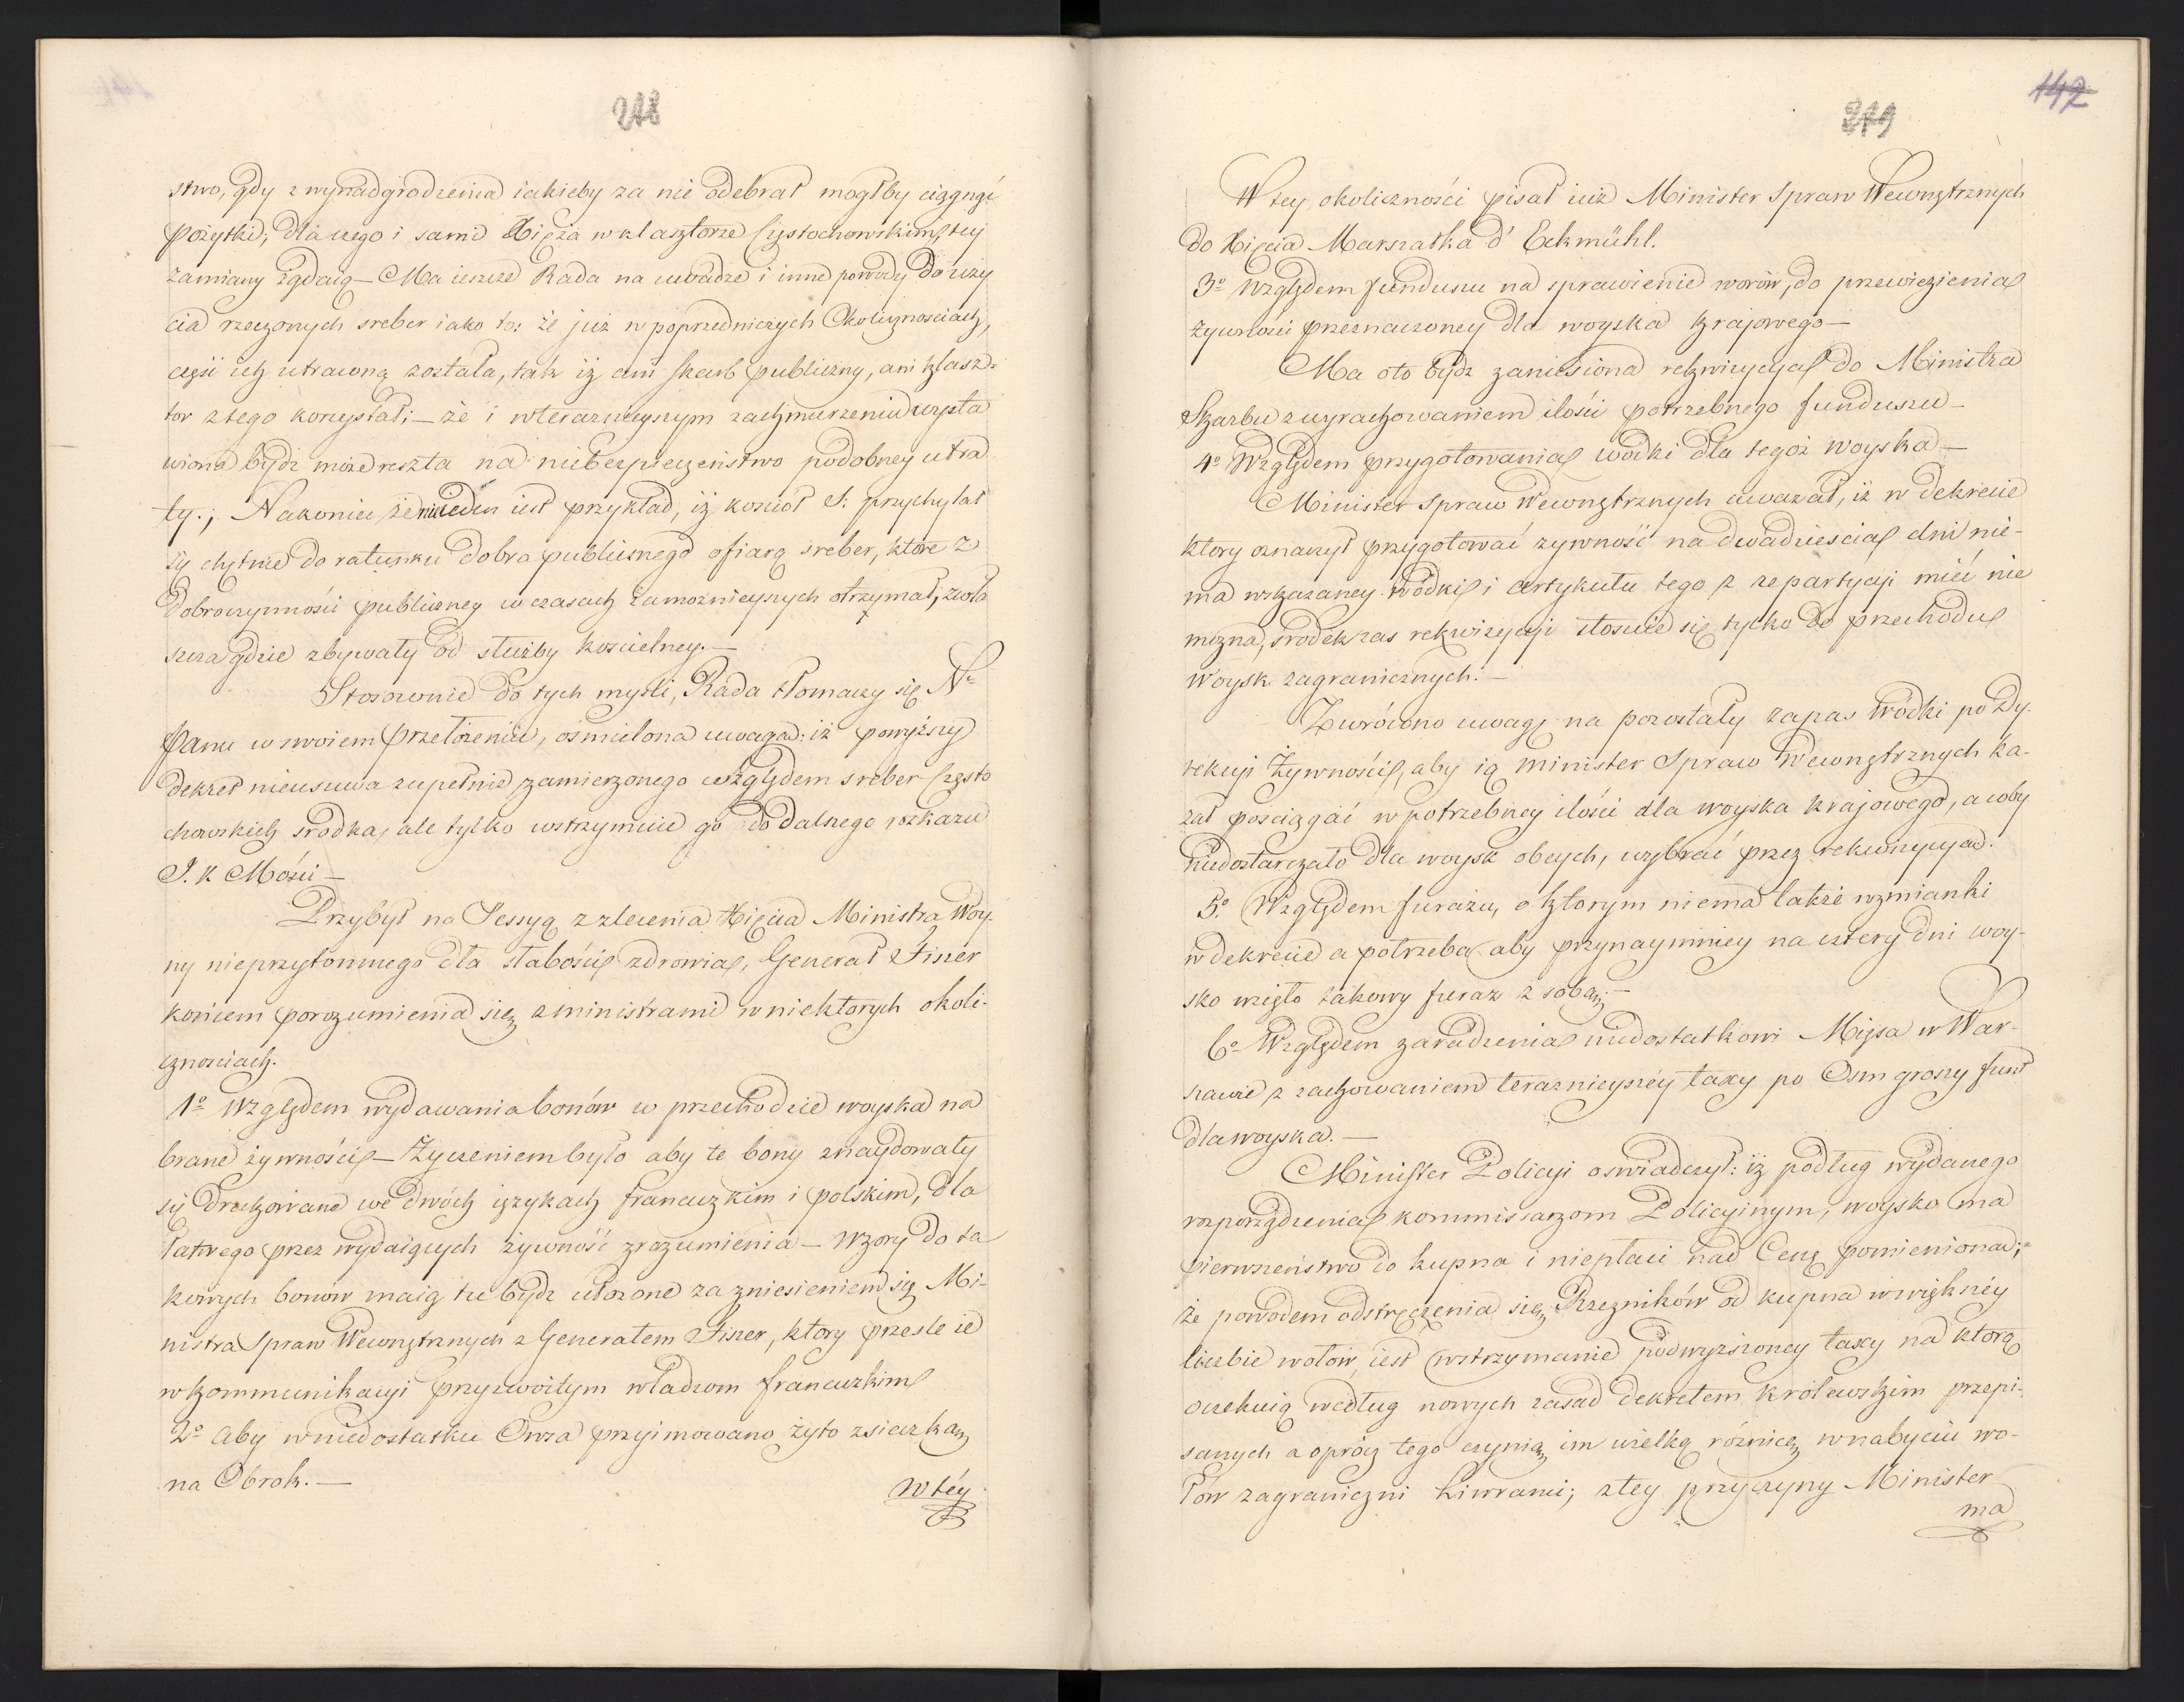 278
stwo, gdy z wynadgrodzenia iakieby za nie odebrał mogłby ciągnąć
pożytki, dla czego i sami Xięża w klasztorze Częstochowskim, tey
zamiany żądaią — Ma ieszcze Rada na uwadze i inne powody do uży
cia rzeczonych sreber iako to: że już w poprzedniczych Okolicznosciach,
część ich utraconą została, tak iż ani skarb publiczny, ani klasz-
tor z tego korzystał; — że i w teraznieyszym zachmurzeniu wysta
wiona bydz może reszta na niebezpieczeństwo podobney utra
ty.; Nakoniec, że nieieden iest przykład, iż kosciół S: przychylał
się chętnie do ratunku dobra publicznego ofiarą sreber, które z
Dobroczynności publiczney w czasach zamożnieyszych otrzymał, zwła
szcza gdzie zbywały od służby koscielney. —
Stosownie do tych mysli, Rada tłomaczy się N.
Panu w swoiem przełożeniu, osmielona uwagą: iż powyższy
dekret nieusuwa zupełnie zamierzonego względem sreber Często
chowskich srodka, ale tylko wstrzymuie go do dalszego rozkazu
J. K Mości —
Przybył na Sessyą z zlecenia Xięcia Ministra Woy-
ny nieprzytomnego dla słabości zdrowia, Generał Fiszer
końcem porozumienia się z ministrami w niektorych okoli-
cznosciach.
1o Względem wydawania bonów w przechodzie woyska na
brane żywności — Życzeniem było aby te bony znaydowały
się drukowane we dwóch ięzykach francuzkim i polskim, dla
łatwego przez wydaiących żywność zrozumienia — wzory do ta
kowych bonów maią tu bydz ułożone za zniesieniem się Mi-
nistra Spraw Wewnętrznych z Generałem Fiszer, ktory przesle ie
w kommunikacyi przyzwoitym władzom francuzkim
2o Aby w niedostatku Owsa przyimowano żyto z sieczką
na Obrok. —
w téy
279
142
W tey okoliczności pisał iuż Minister Spraw Wewnętrznych
do Xięcia Marszałka d' Eckmühl.
3o Względem funduszu na sprawienie worów, do przewiezienia
żywności przeznaczoney dla woyska krajowego —
Ma oto bydz zaniesiona rekwizycya do Ministra
Skarbu z wyrachowaniem ilości potrzebnego funduszu —
4o Względem przygotowania wódki dla tegoż woyska —
Minister Spraw Wewnętrznych uważał, iż w dekrecie
ktory oznaczył przygotować żywność na dwadziescia dni nie-
ma wskazaney Wódki i artykułu tego z repartycyi mieć nie
można, środek zas rekwizycyi stosuie się tylko do przechodu
Woysk zagranicznych. —
Zwrócono uwagę na pozostały zapas Wódki po Dy-
rekcyi Żywności, aby ią Minister Spraw Wewnętrznych ka-
zał pościągać w potrzebney ilości dla woyska krajowego, a coby
niedostarczało dla woysk obcych, wybrać przez rekwizycyą.
5o. Względem furażu, o ktorym niema także wzmianki
w dekrecie a potrzeba aby przynaymniey na cztery dni woy-
sko wzięło takowy furaż z sobą; —
6o Względem zaradzenia niedostatkowi Mięsa w War-
szawie z zachowaniem teraznieyszéy taxy po Osm groszy funt
dla woyska. —
Minister Policyi oswiadczył: iż podług wydanego
rozporządzenia kommissarzom Policyinym, woysko ma
pierwszeństwo do kupna i niepłaci nad Cenę pomienioną; —
że powodem odstręczenia się Rzezników od kupna w większéy
liczbie wołów, iest wstrzymanie podwyższoney taxy na ktorą
oczekuią według nowych zasad dekretem królewskim przepi-
sanych a oprócz tego czynią im wielką róznicę w nabyciu wo-
łów zagraniczni Liwranci; z tey przyczyny Minister
ma